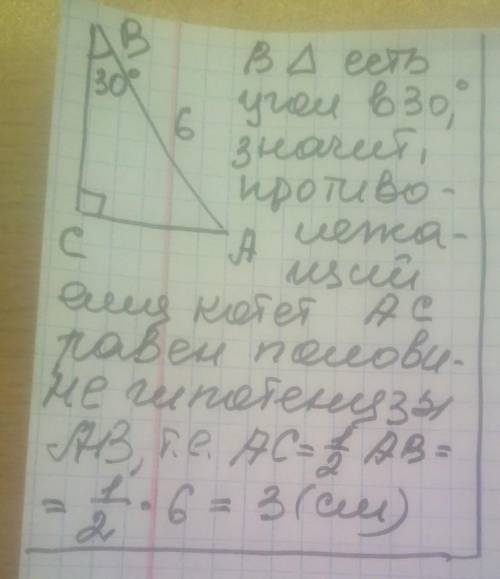 B
30°
6
C
A
В △ есть
угол в 30°,
значит,
противо-
лежа-
щий
ему катет AC
равен полови-
не гипотенузы
AB, т.е. AC = 1/2 AB =
= 1/2 · 6 = 3 (см)